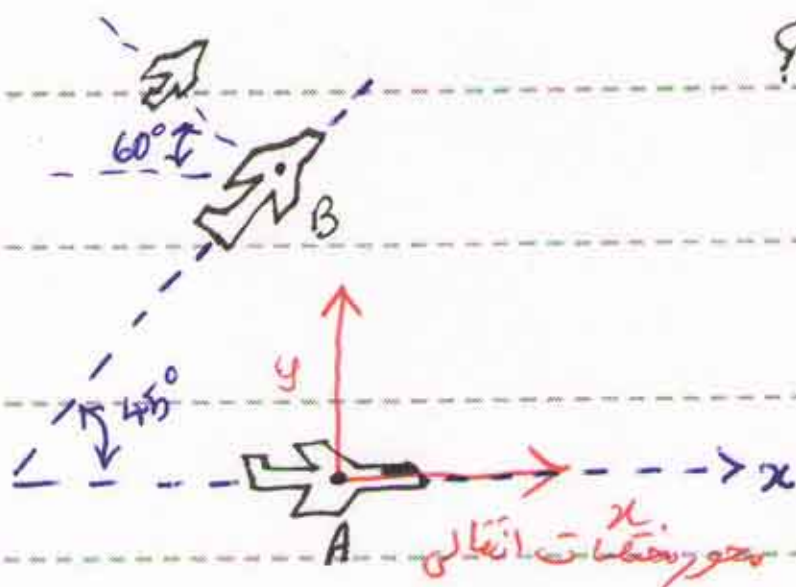 ؟
60°
B
45°
y
x
A
x
محور مختصات انتقالی